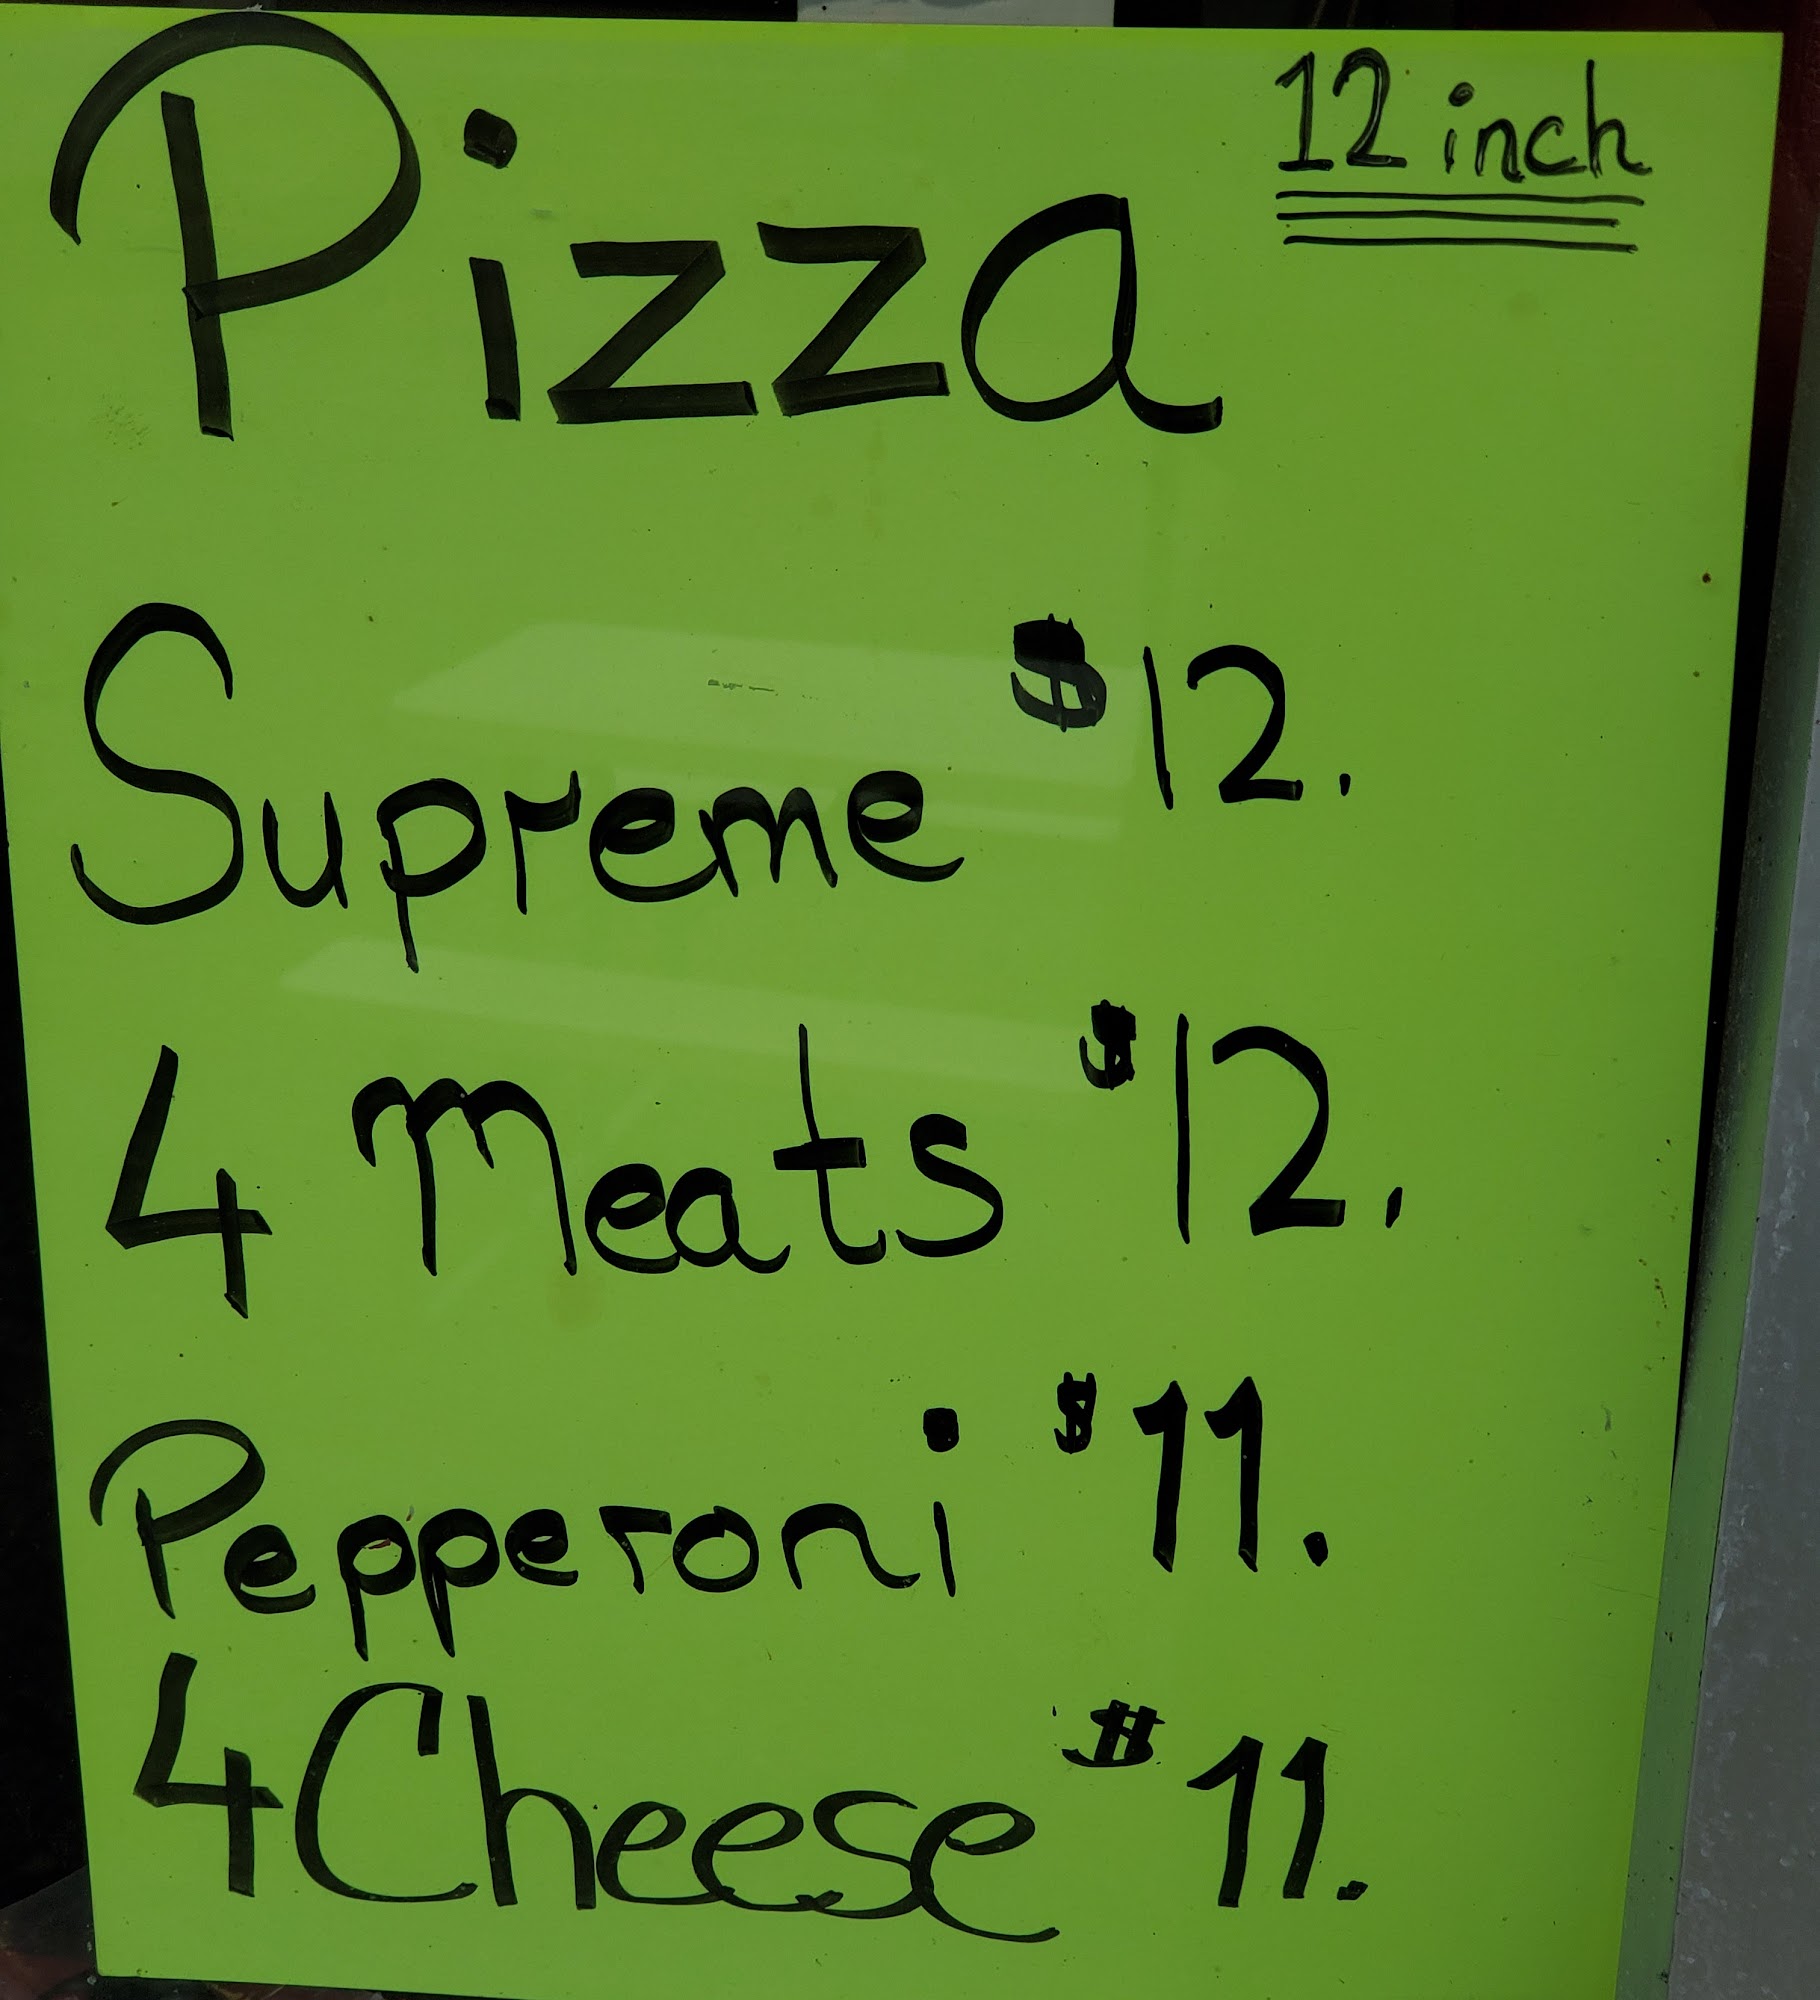 Pizza 12 inch
Supreme $12.
4 Meats $12.
Pepperoni $11.
4 Cheese $11.